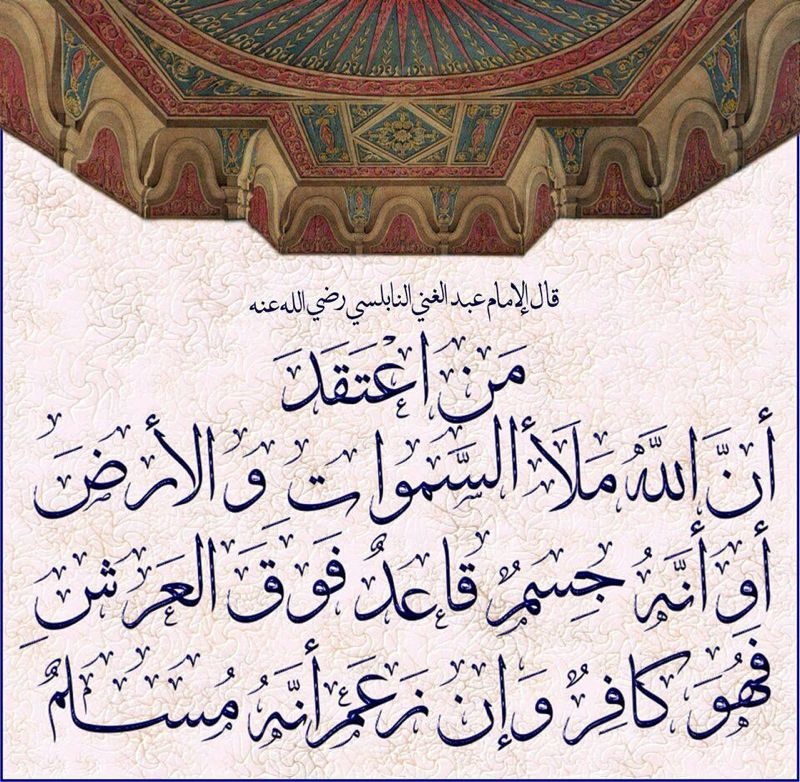 قال الإمام عبد الغني النابلسي رضي الله عنه
مَن اعْتَقَدَ
أنَّ اللَّهَ مَلَأ السَّمواتِ والأرضَ
أو أنَّهُ جِسمٌ قاعدٌ فَوقَ العَرشِ
فَهُوَ كافِرٌ وَإن زَعَمَ أنَّهُ مُسلمٌ